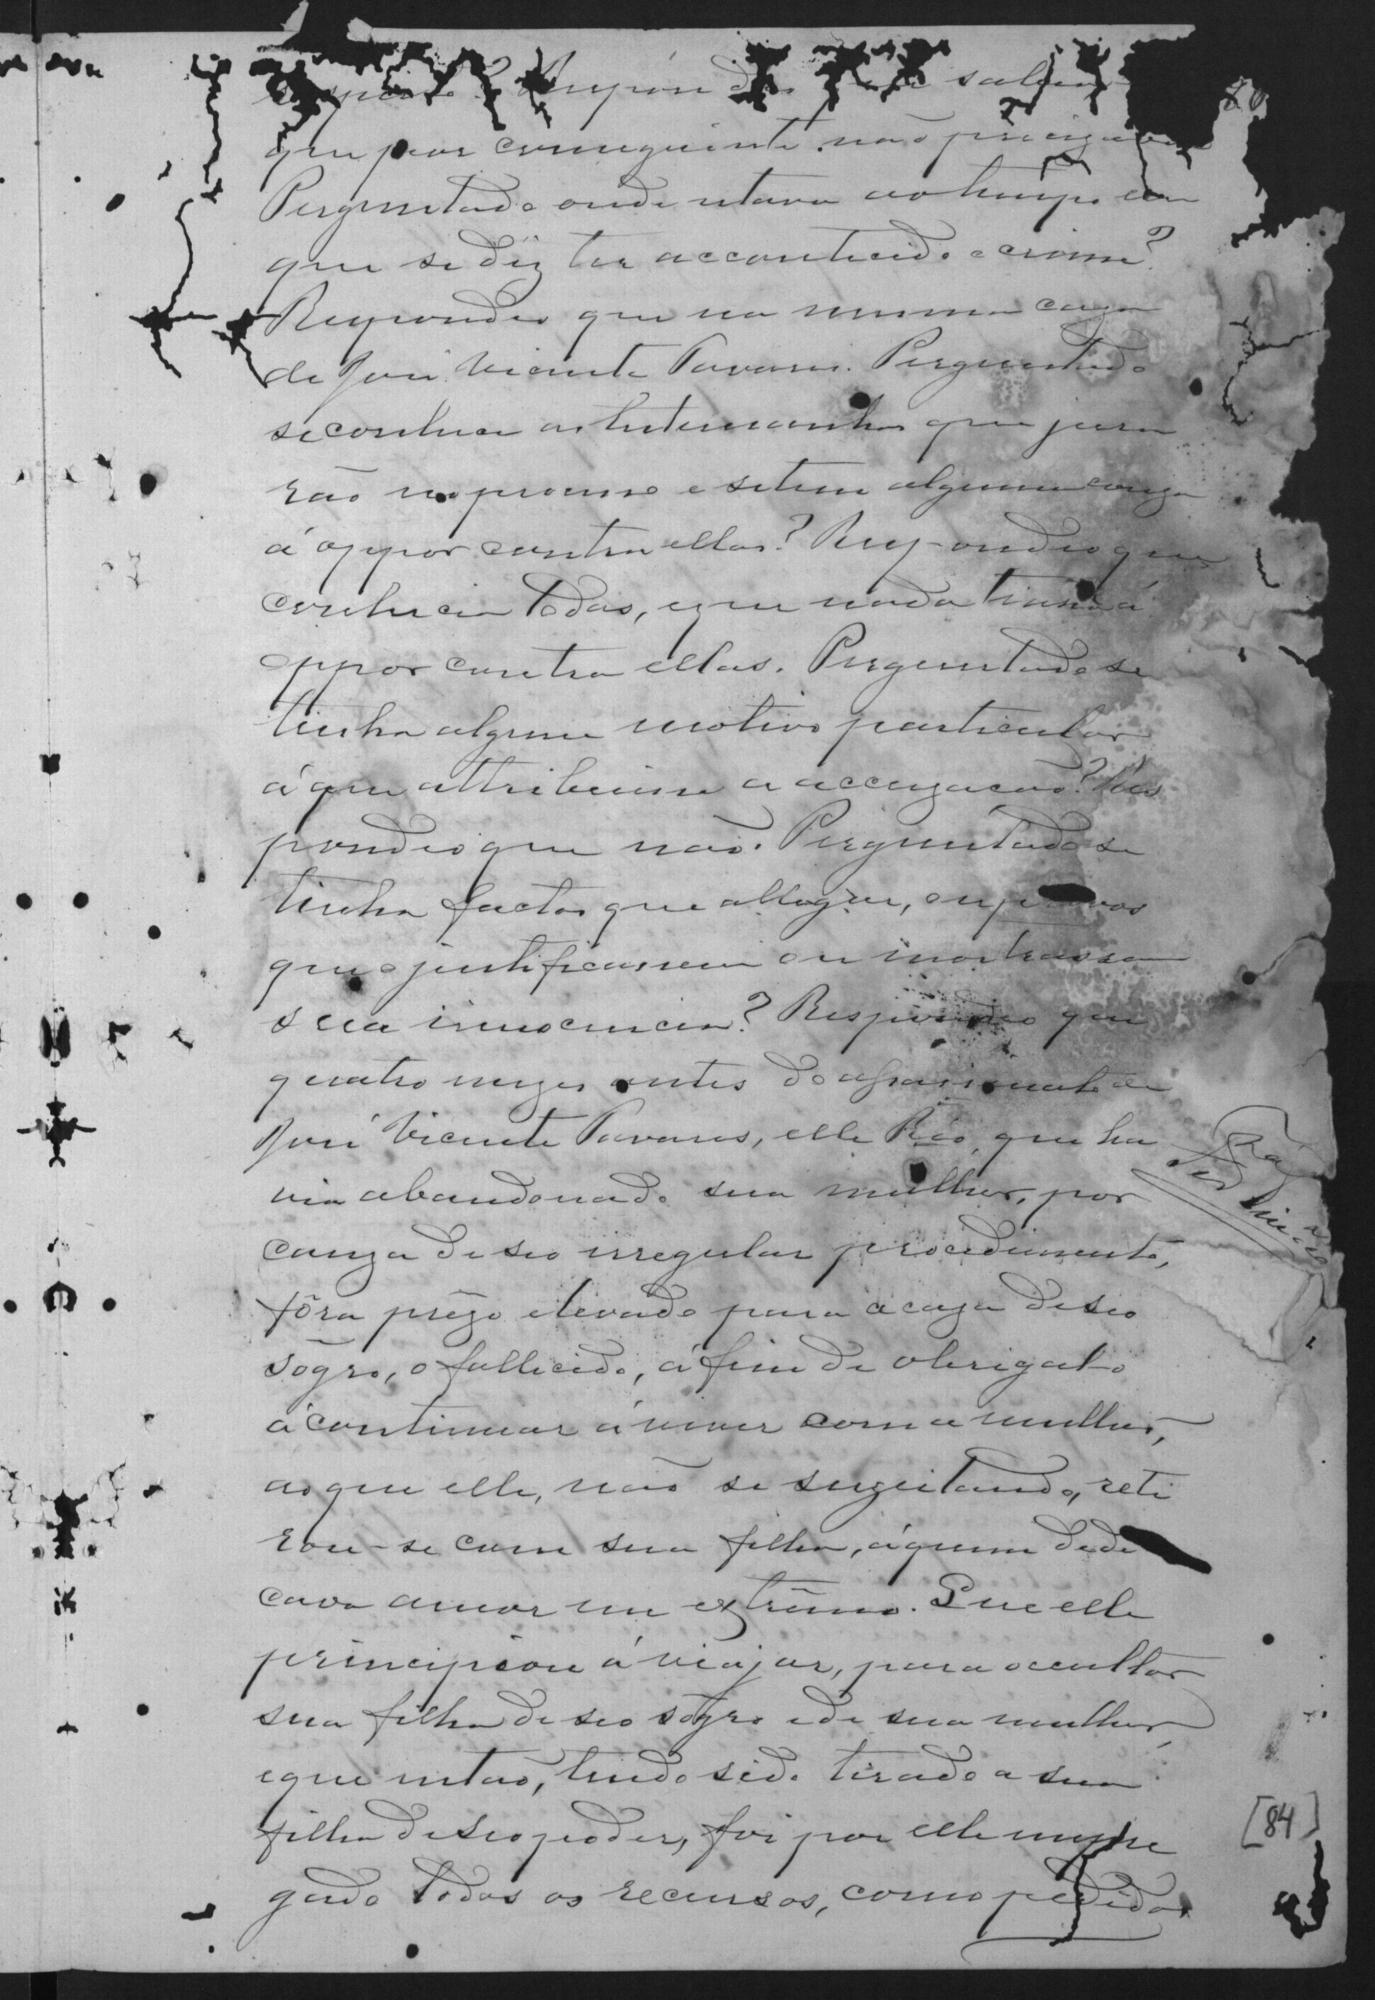 Respondeo sabia
que por conseguinte não precizava
Perguntado onde estava ao tempo em
que se diz ter accontecido o crime?
Respondeo que na mesma caza
de José Vicente Tavares. Perguntado
se conhece as testemunhas que jura
rão no processo e se tem alguma couza
á oppor contra ellas? Respondeo que
conhecia todas, e que nada tinha á
oppor contra ellas. Perguntado se
tinha algum motivo particular
á que attribuisse a accuzação? Res
pondeo que não. Perguntado se
tinha factos que allegar, ou provas
que o justificassem ou mostrassem
sua innocencia? Respondeo que
quatro mezes antes do assassinato de
José Vicente Tavares, elle Réo, que ha
via abandonado sua mulher, por
cauza de seo irregular procedimento,
fôra prêzo e levado para a caza de seo
sôgro, o fallecido, á fim de obrigal-o
á continuar á viver com a mulher,
ao que elle, não se sugeitando, reti
rou-se com sua filha, á quem dedi
cava amor em extrêmo. Que elle
principiou á viajar, para occultar
sua filha de seo sôgro e de sua mulher,
e que então, tendo sido tirado a sua
filha de seo poder, foi por elle empre
gado todos os recursos, como pedidos
[84]